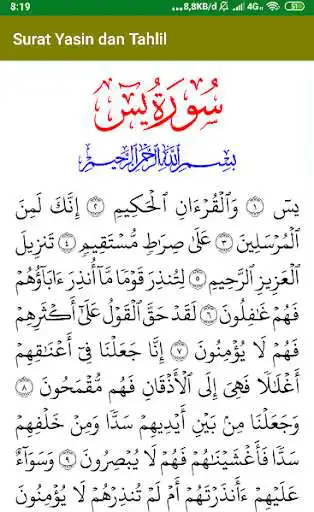 8:19
...8,8KB/d 4G 51
Surat Yasin dan Tahlil
سُورَةُ يسٓ
بِسْمِ ٱللَّهِ ٱلرَّحْمَٰنِ ٱلرَّحِيمِ
يسٓ ۝١ وَٱلْقُرْءَانِ ٱلْحَكِيمِ ۝٢ إِنَّكَ لَمِنَ
ٱلْمُرْسَلِينَ ۝٣ عَلَىٰ صِرَٰطٍ مُّسْتَقِيمٍ ۝٤ تَنزِيلَ
ٱلْعَزِيزِ ٱلرَّحِيمِ ۝٥ لِتُنذِرَ قَوْمًا مَّآ أُنذِرَ ءَابَآؤُهُمْ
فَهُمْ غَٰفِلُونَ ۝٦ لَقَدْ حَقَّ ٱلْقَوْلُ عَلَىٰٓ أَكْثَرِهِمْ
فَهُمْ لَا يُؤْمِنُونَ ۝٧ إِنَّا جَعَلْنَا فِىٓ أَعْنَٰقِهِمْ
أَغْلَٰلًا فَهِىَ إِلَى ٱلْأَذْقَانِ فَهُم مُّقْمَحُونَ ۝٨
وَجَعَلْنَا مِنۢ بَيْنِ أَيْدِيهِمْ سَدًّا وَمِنْ خَلْفِهِمْ
سَدًّا فَأَغْشَيْنَٰهُمْ فَهُمْ لَا يُبْصِرُونَ ۝٩ وَسَوَآءٌ
عَلَيْهِمْ ءَأَنذَرْتَهُمْ أَمْ لَمْ تُنذِرْهُمْ لَا يُؤْمِنُونَ